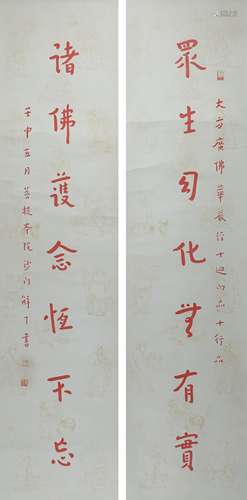 大方廣佛華嚴經十迴向品十行品
眾生幻化無有實
諸佛護念恆不忘
壬申五月菩提院沙門了書